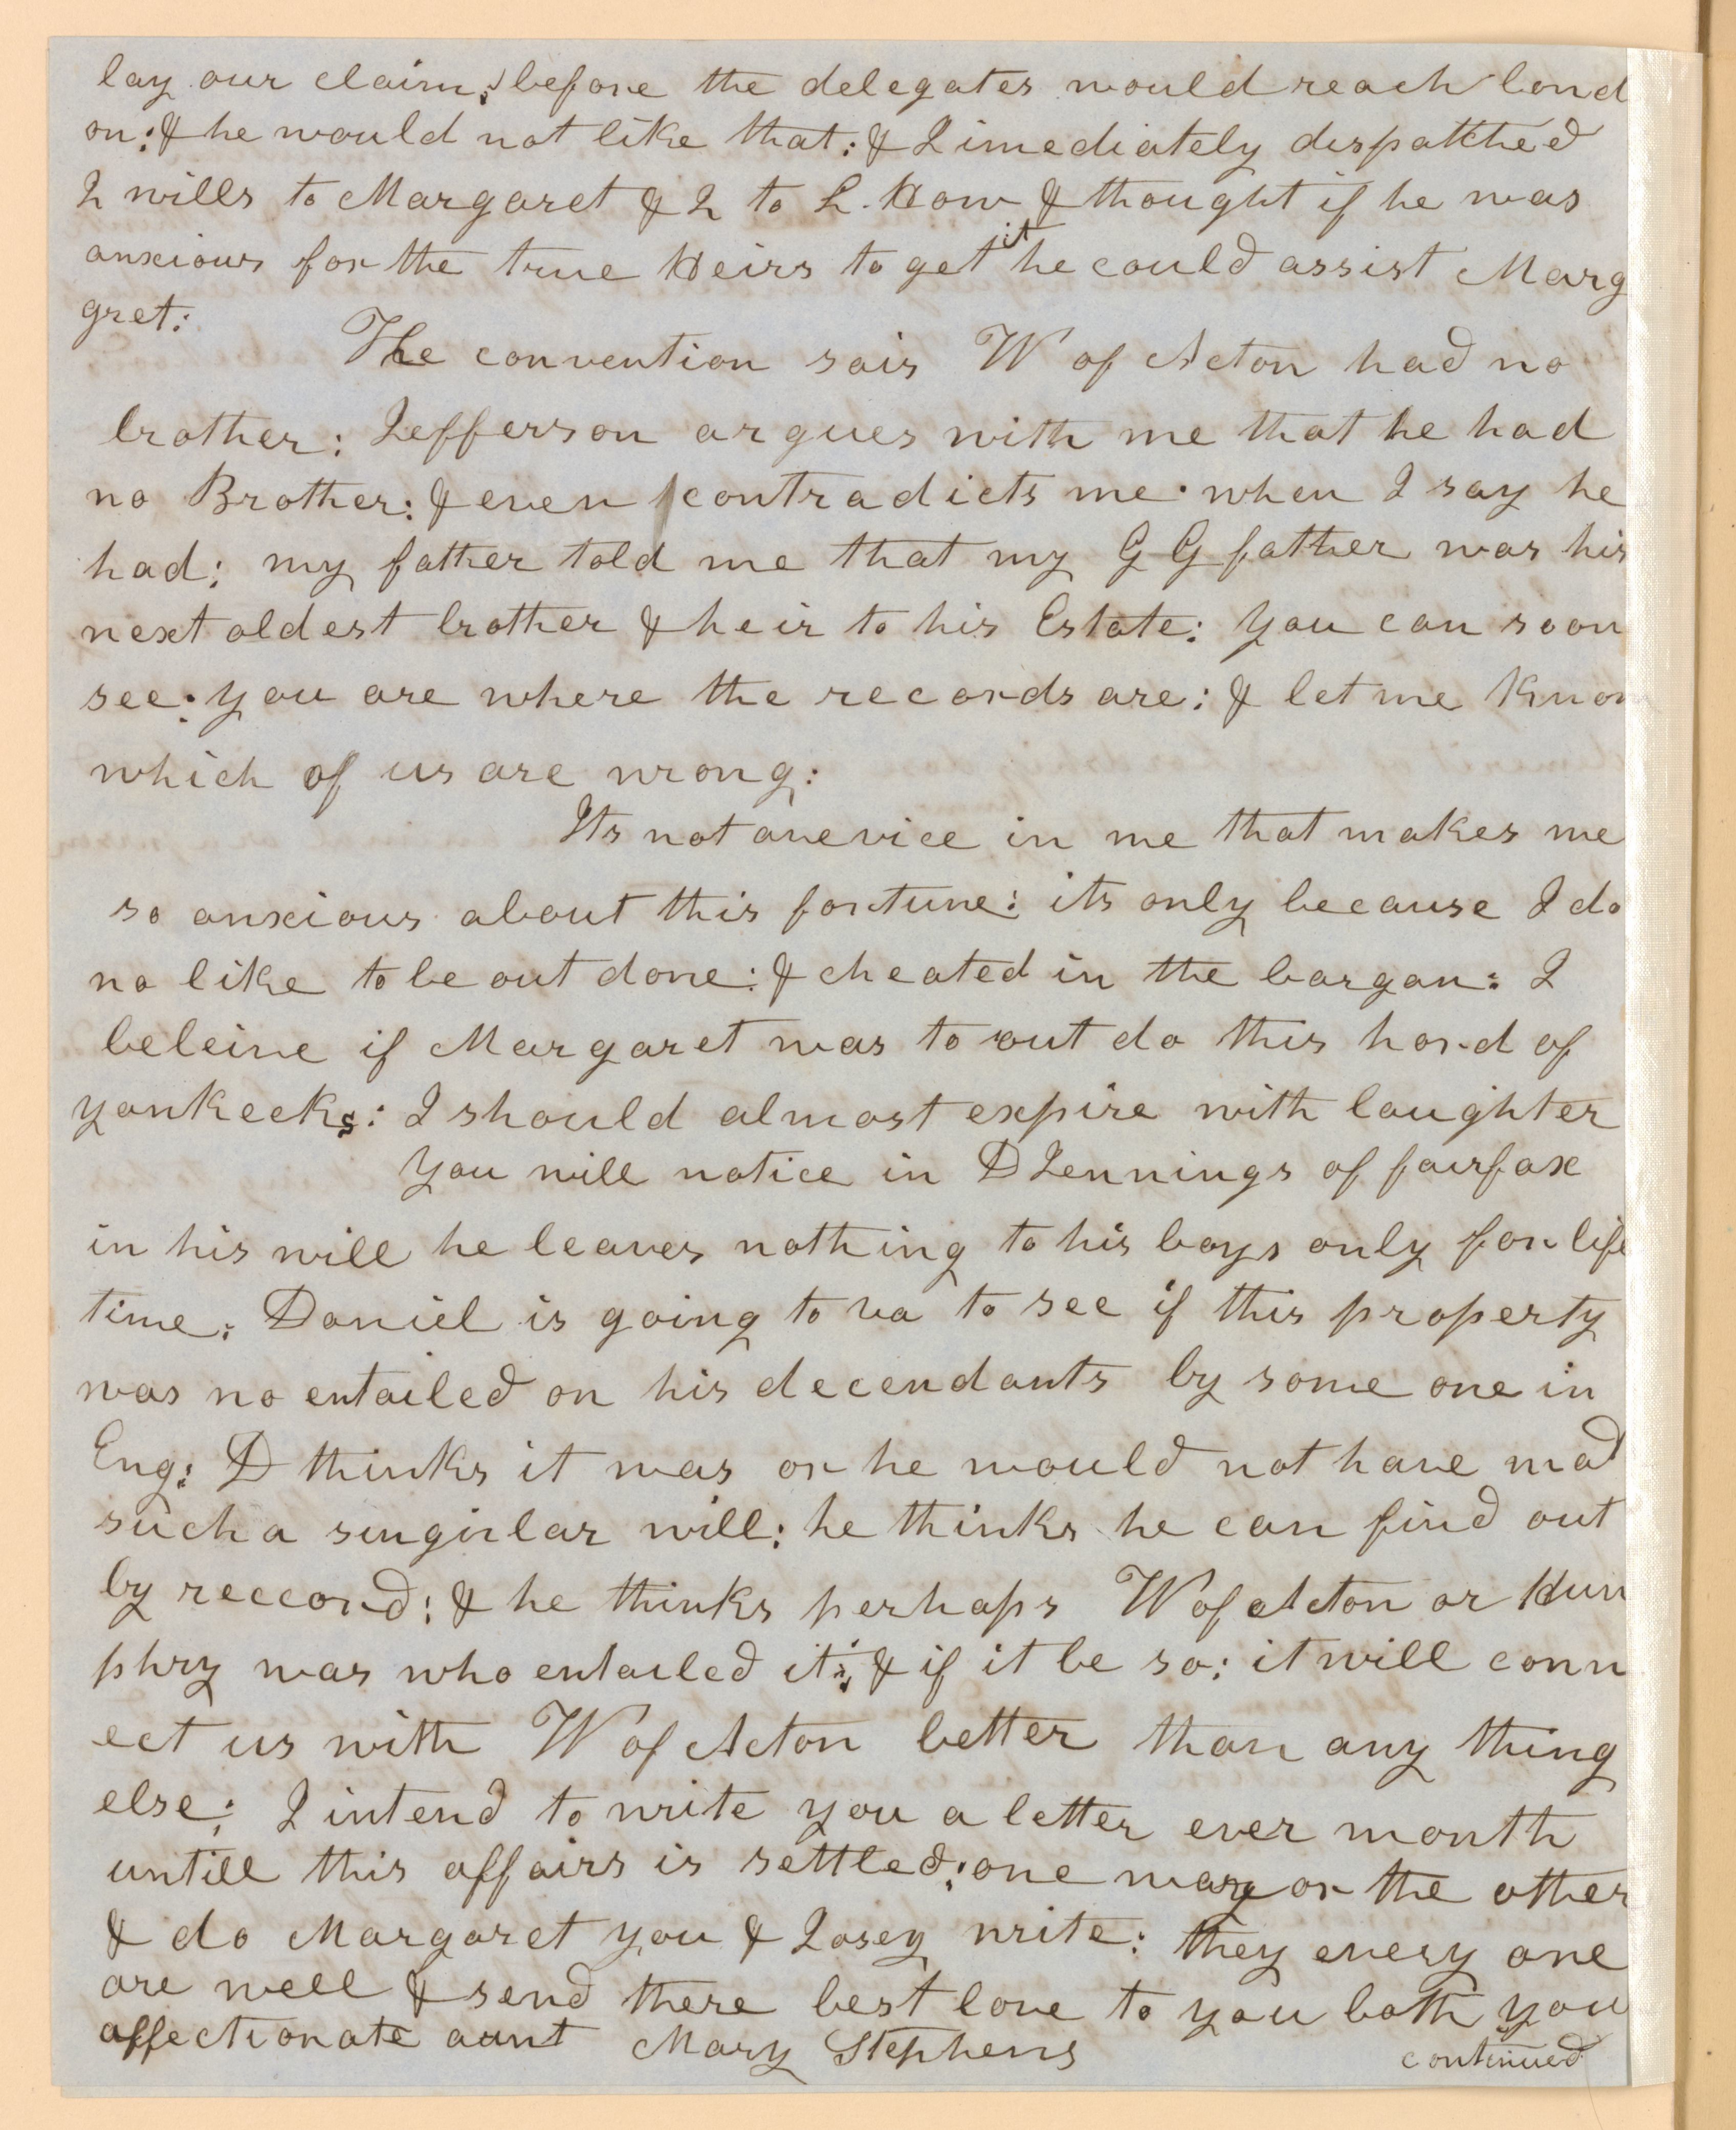 lay our claim; before the delegates would reach lond
on: & he would not like that: & I imediately dispatched
2 wills to Margaret & 2 to L. How & thought if he was
anxious for the true Heirs to get it he could assist Marg
gret:
The convention sais W of Acton had no
brother: Jefferson argues with me that he had
no Brother: & even contradicts me when I say he
had: my father told me that my G G father was his
next oldest brother & heir to his Estate: you can soon
see: you are where the records are: & let me know
which of us are wrong:
Its not averice in me that makes me
so anxious about this fortune: its only because I do
no like to be out done: & cheated in the bargan: I
beleive if Margaret was to out do this hord of
yankeeks: I should almost expire with laughter
you will notice in D Jennings of fairfax
in his will he leaves nothing to his boys only for life
time: Daniel is going to va to see if this property
was no entailed on his decendants by some one in
Eng: D thinks it was or he would not have mad
such a singular will: he thinks he can find out
by reccord: & he thinks perhaps W of Acton or Hum
phry was who entailed it: & if it be so: it will conn
ect us with W of Acton better than any thing
else: I intend to write you a letter ever month
untill this affairs is settled: one way or the other
& do Margaret you & Josey write: they every one
are well & send there best love to you both you
affectionate aunt Mary Stephens
continued